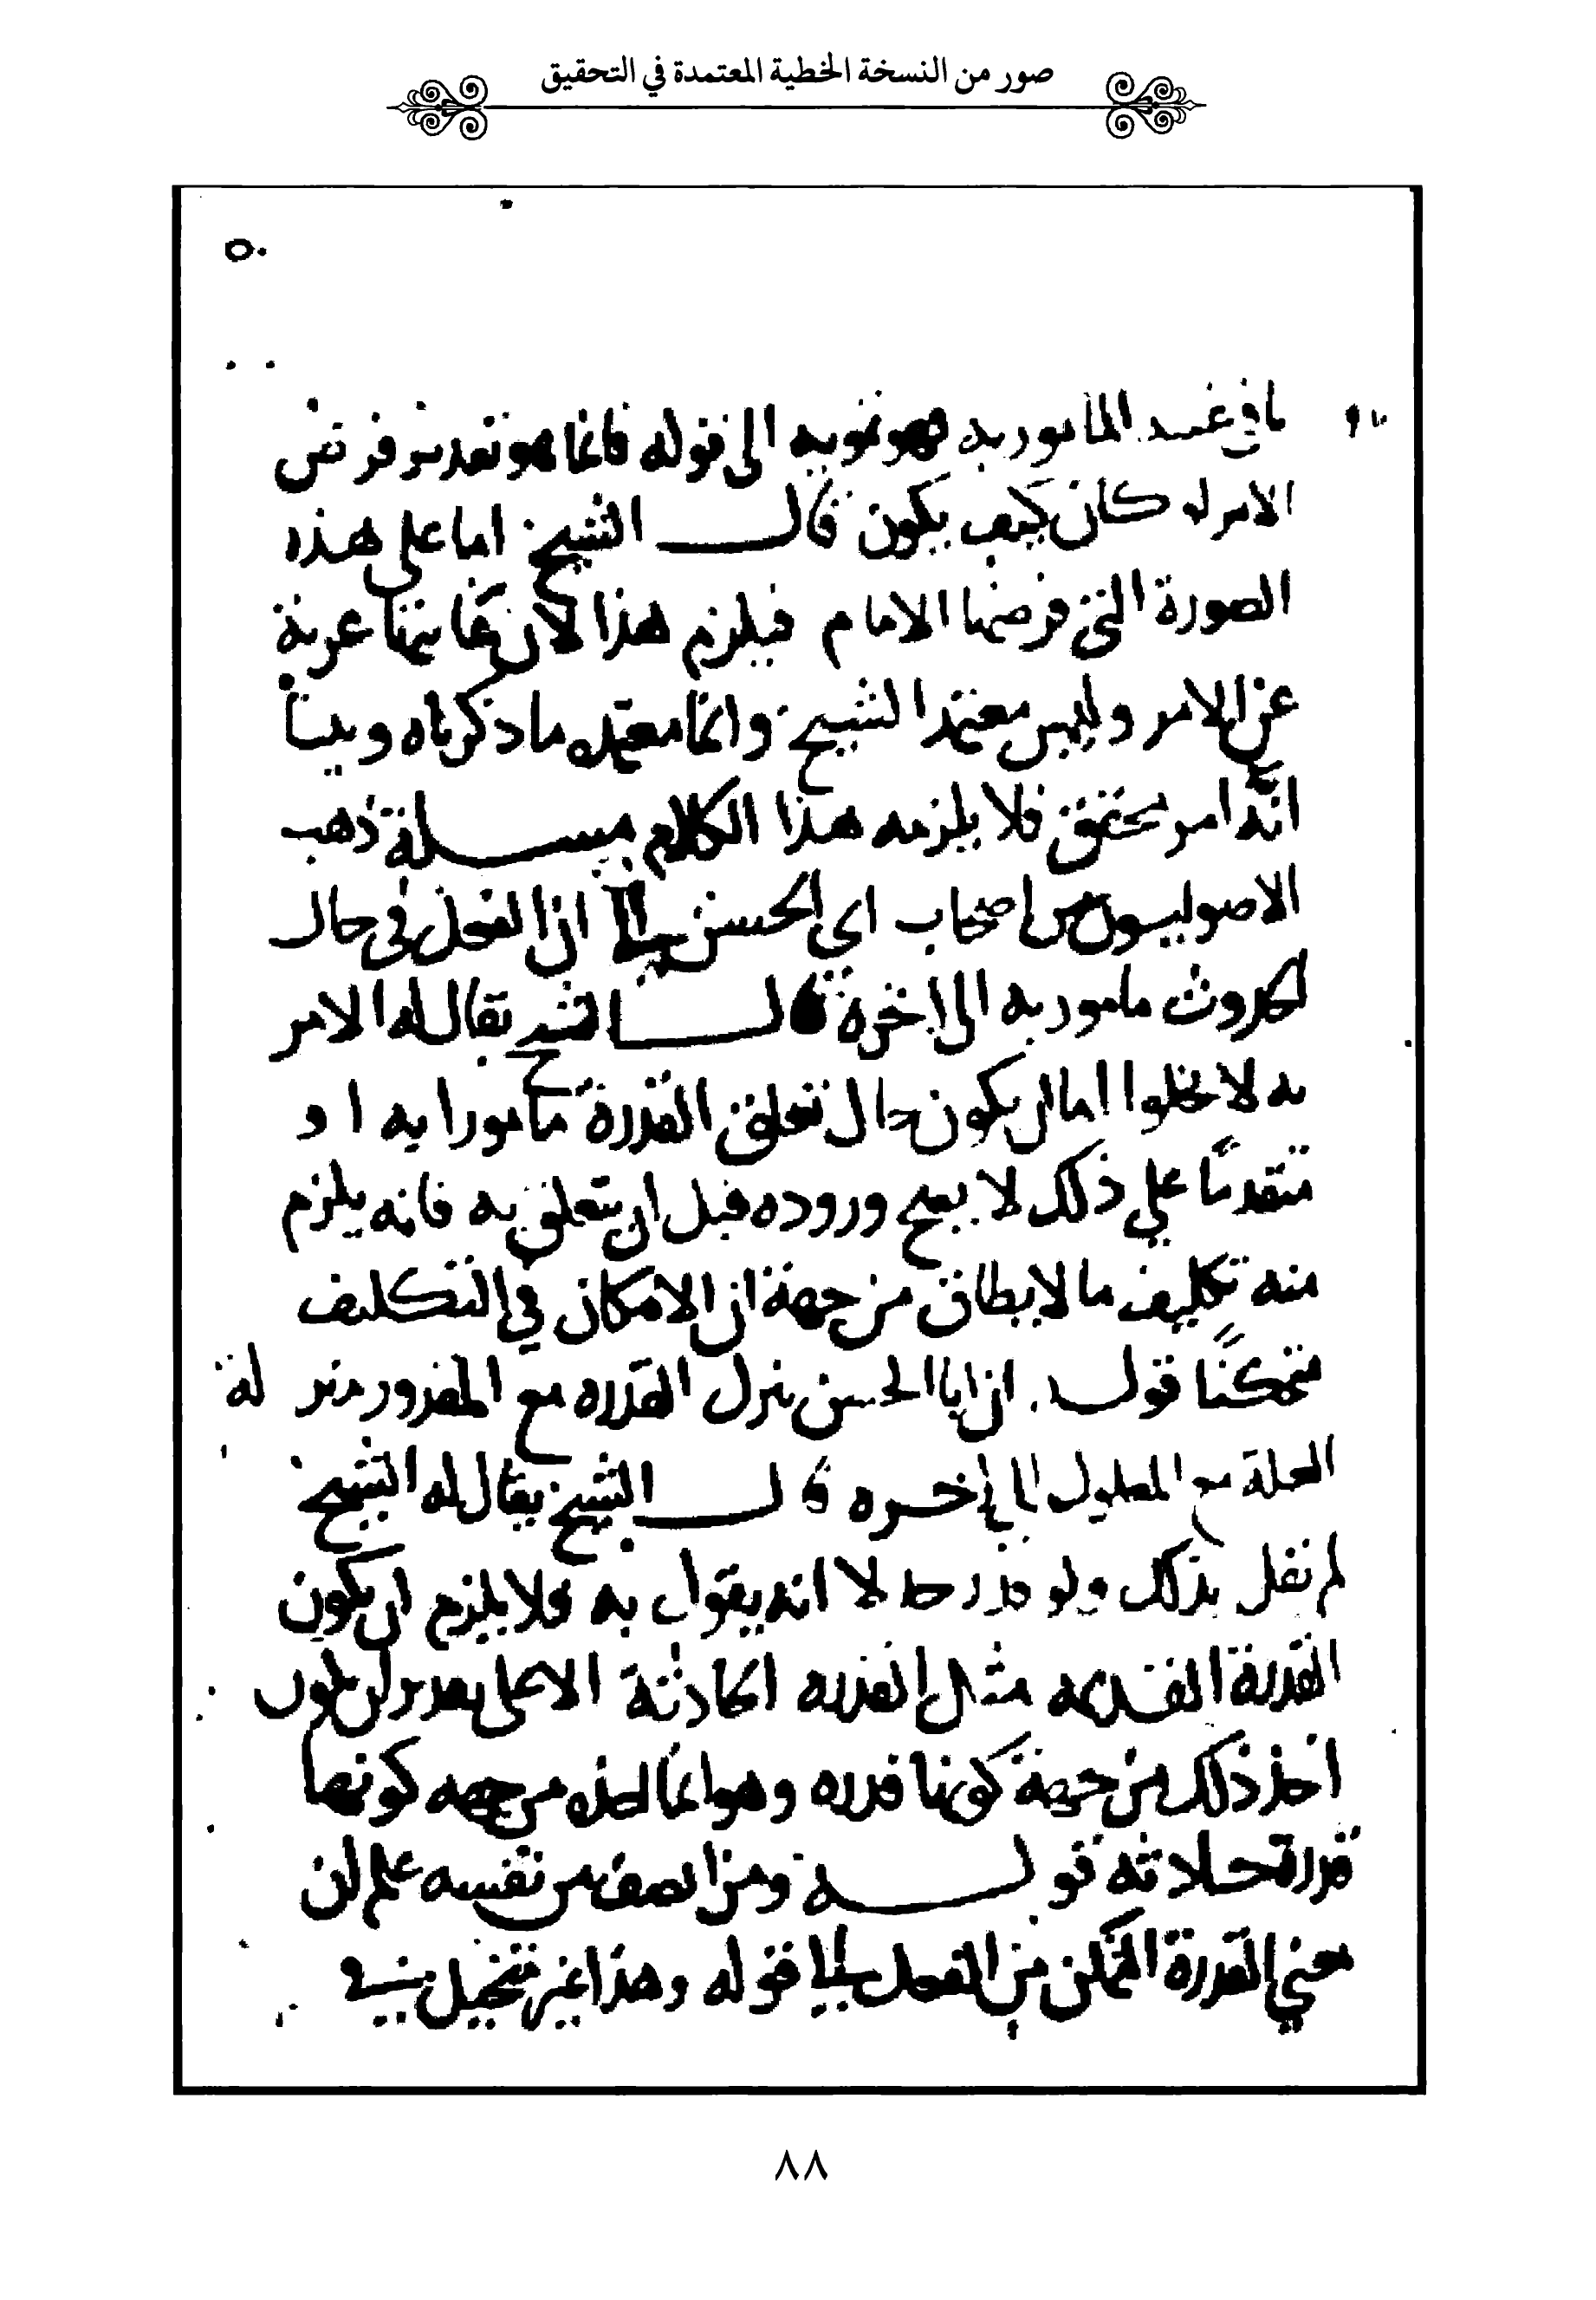 صور من النسخة الخطية المعتمدة في التحقيق
٥٠
ما في المأمور به فهو تمويه الى قوله فانما هو تقدير
الامر لو كان كيف يكون قال الشيخ اما على هذه
الصورة التي فرضها الامام فيلزم هذا لان عرية
عن الامر وليس معتمد الشيخ وانما معتمده ما ذكرناه وبينا
انه امر محقق فلا يلزمه هذا الكلام مسلة ذهب
الاصوليون من اصحاب ابي الحسن الى ان الفعل في حال
الحدوث مامور به الى اخره قال الشيخ يقال له الامر
به لا يخلوا اما ان يكون حال تعلق القدرة مامورا به او
متقدما على ذلك لا يصح وروده قبل ان يتعلق به فانه يلزم
منه تكليف ما لا يطاق من جهة ان الامكان في التكليف
قوله ان ابا الحسن ينزل القدره مع المقدور منزلة
العلة مع المعلول الى اخره قال الشيخ يقال له الشيخ
لم يقل بذلك ولو لا انه يقول به فلا يلزم ان يكون
القدرة القديمه مثل القدره الحادثة الا على تقدير ان يكون
اخذ ذلك من جهة كونها قدره وهو انما اخذه من جهه كونها
قدرة حادثه قوله ومن انصف من نفسه علم ان
معنى القدرة التمكن من الفعل الى قوله وهذا غير مستحيل
٨٨